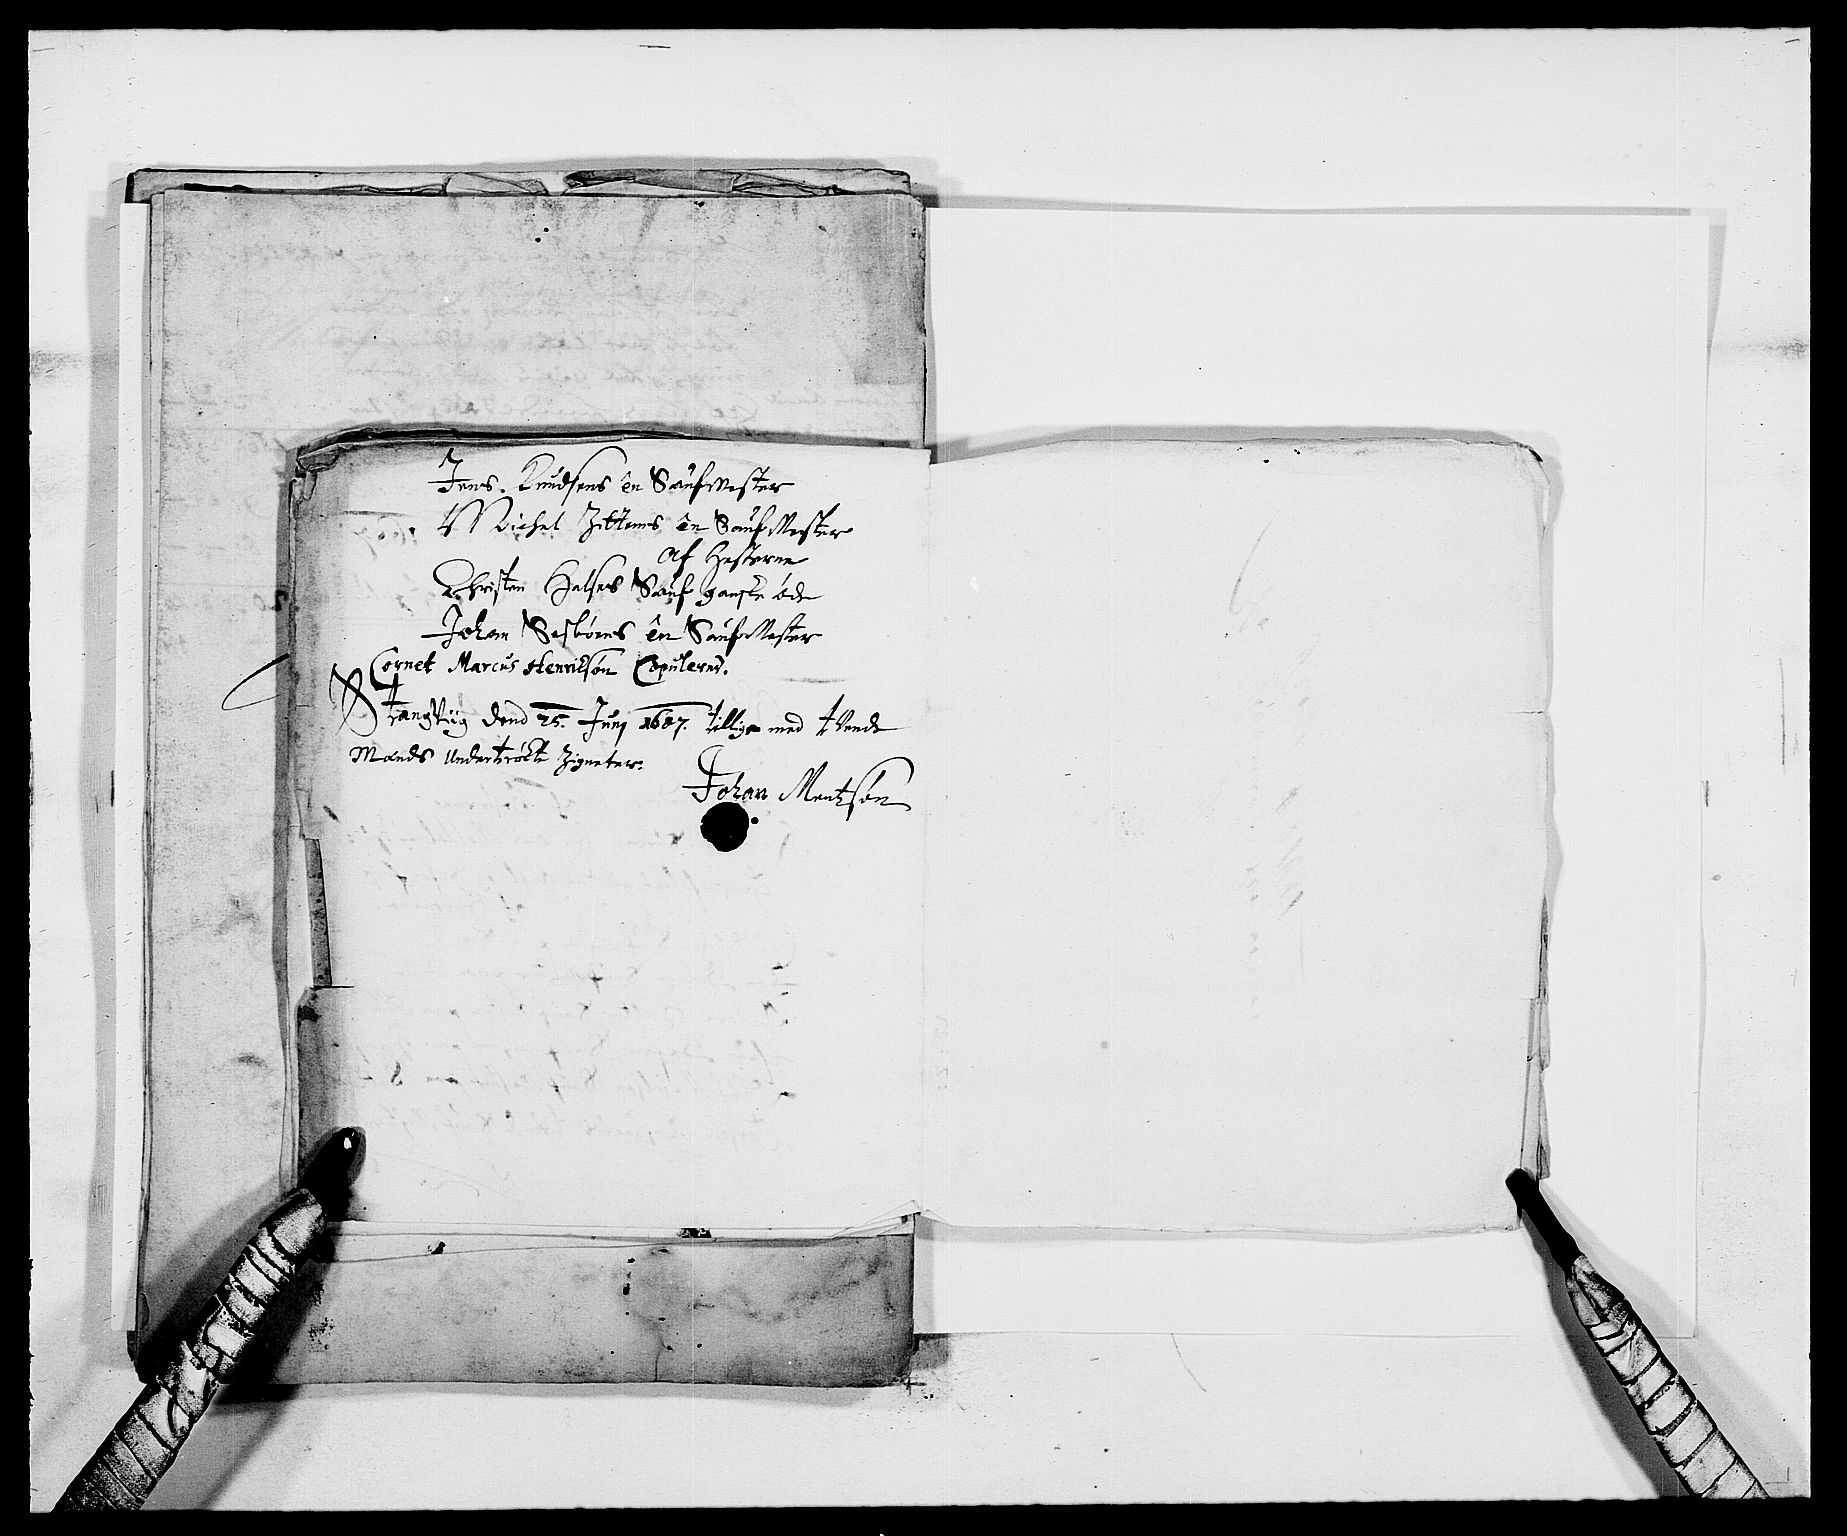 Jens Knudsens en Sauf Mester
Michel Zittems en Sauf Mester
af Hesterne
Christen Helses Sauf ganske øde
Johan Sesbøens en Sauf Mester
Cornet Marcus Henriksøn Copulerns.
Strangviig dend 25. Junj 1687. tillige med tvende
Mænds undertrøkte Zigneter.
Johan Mentzsøn